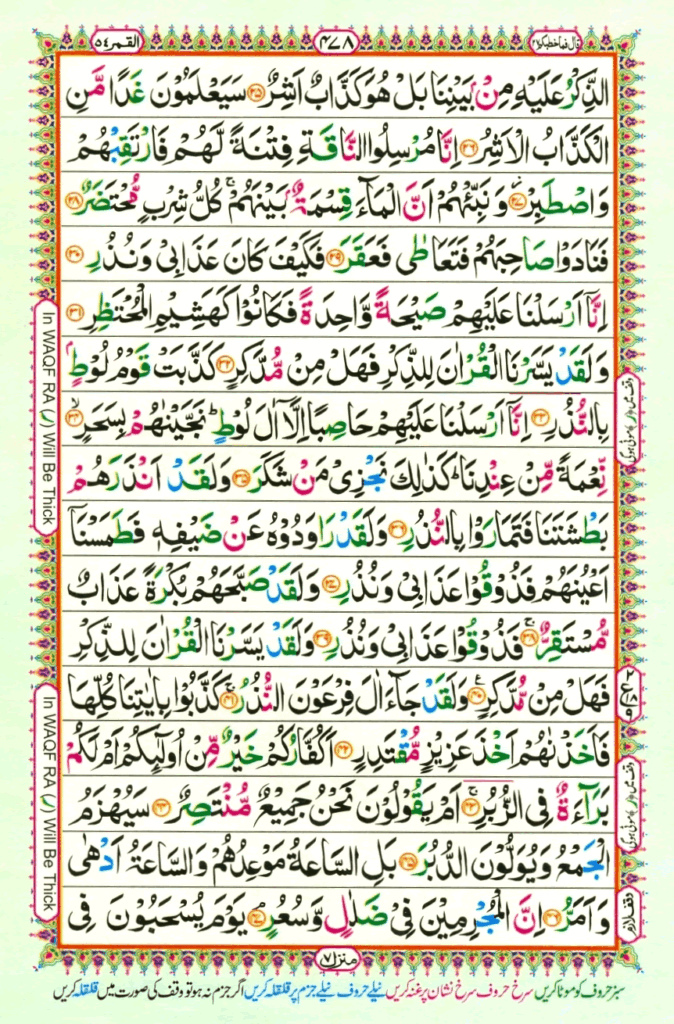 قال فما خطبکم ٢٧
٤٧٨
القمر ٥٤
الذِّكْرُ عَلَيْهِ مِنْۢ بَيْنِنَا بَلْ هُوَ كَذَّابٌ اَشِرٌ ﴿٢٥﴾ سَيَعْلَمُوْنَ غَدًا مَّنِ
الْكَذَّابُ الْاَشِرُ ﴿٢٦﴾ اِنَّا مُرْسِلُوا النَّاقَةِ فِتْنَةً لَّهُمْ فَارْتَقِبْهُمْ
وَاصْطَبِرْ ﴿٢٧﴾ وَنَبِّئْهُمْ اَنَّ الْمَآءَ قِسْمَةٌۢ بَيْنَهُمْ ۚ كُلُّ شِرْبٍ مُّحْتَضَرٌ ﴿٢٨﴾
فَنَادَوْا صَاحِبَهُمْ فَتَعَاطٰى فَعَقَرَ ﴿٢٩﴾ فَكَيْفَ كَانَ عَذَابِىْ وَنُذُرِ ﴿٣٠﴾
اِنَّاۤ اَرْسَلْنَا عَلَيْهِمْ صَيْحَةً وَّاحِدَةً فَكَانُوْا كَهَشِيْمِ الْمُحْتَظِرِ ﴿٣١﴾
وَلَقَدْ يَسَّرْنَا الْقُرْاٰنَ لِلذِّكْرِ فَهَلْ مِنْ مُّدَّكِرٍ ﴿٣٢﴾ كَذَّبَتْ قَوْمُ لُوْطٍۢ
بِالنُّذُرِ ﴿٣٣﴾ اِنَّاۤ اَرْسَلْنَا عَلَيْهِمْ حَاصِبًا اِلَّاۤ اٰلَ لُوْطٍ ؕ نَجَّيْنٰهُمْ بِسَحَرٍ ۙ﴿٣٤﴾
نِّعْمَةً مِّنْ عِنْدِنَا ؕ كَذٰلِكَ نَجْزِىْ مَنْ شَكَرَ ﴿٣٥﴾ وَلَقَدْ اَنْذَرَهُمْ
بَطْشَتَنَا فَتَمَارَوْا بِالنُّذُرِ ﴿٣٦﴾ وَلَقَدْ رَاوَدُوْهُ عَنْ ضَيْفِهٖ فَطَمَسْنَاۤ
اَعْيُنَهُمْ فَذُوْقُوْا عَذَابِىْ وَنُذُرِ ﴿٣٧﴾ وَلَقَدْ صَبَّحَهُمْ بُكْرَةً عَذَابٌ
مُّسْتَقِرٌّ ۚ﴿٣٨﴾ فَذُوْقُوْا عَذَابِىْ وَنُذُرِ ﴿٣٩﴾ وَلَقَدْ يَسَّرْنَا الْقُرْاٰنَ لِلذِّكْرِ
فَهَلْ مِنْ مُّدَّكِرٍ ﴿٤٠﴾ وَلَقَدْ جَآءَ اٰلَ فِرْعَوْنَ النُّذُرُ ۚ﴿٤١﴾ كَذَّبُوْا بِاٰيٰتِنَا كُلِّهَا
فَاَخَذْنٰهُمْ اَخْذَ عَزِيْزٍ مُّقْتَدِرٍ ﴿٤٢﴾ اَكُفَّارُكُمْ خَيْرٌ مِّنْ اُولٰٓئِكُمْ اَمْ لَكُمْ
بَرَآءَةٌ فِى الزُّبُرِ ۚ﴿٤٣﴾ اَمْ يَقُوْلُوْنَ نَحْنُ جَمِيْعٌ مُّنْتَصِرٌ ﴿٤٤﴾ سَيُهْزَمُ
الْجَمْعُ وَيُوَلُّوْنَ الدُّبُرَ ﴿٤٥﴾ بَلِ السَّاعَةُ مَوْعِدُهُمْ وَالسَّاعَةُ اَدْهٰى
وَاَمَرُّ ﴿٤٦﴾ اِنَّ الْمُجْرِمِيْنَ فِىْ ضَلٰلٍ وَّسُعُرٍ ﴿٤٧﴾ يَوْمَ يُسْحَبُوْنَ فِى
منزل ٧
سبز حروف کو موٹا کریں سرخ حروف سرخ نشان پر غنہ کریں نیلے حروف نیلے جزم پر قلقلہ کریں اگر جزم نہ ہو تو وقف کی صورت میں قلقلہ کریں
In WAQF RA (ر) Will Be Thick
In WAQF RA (ر) Will Be Thick
وقف لازم